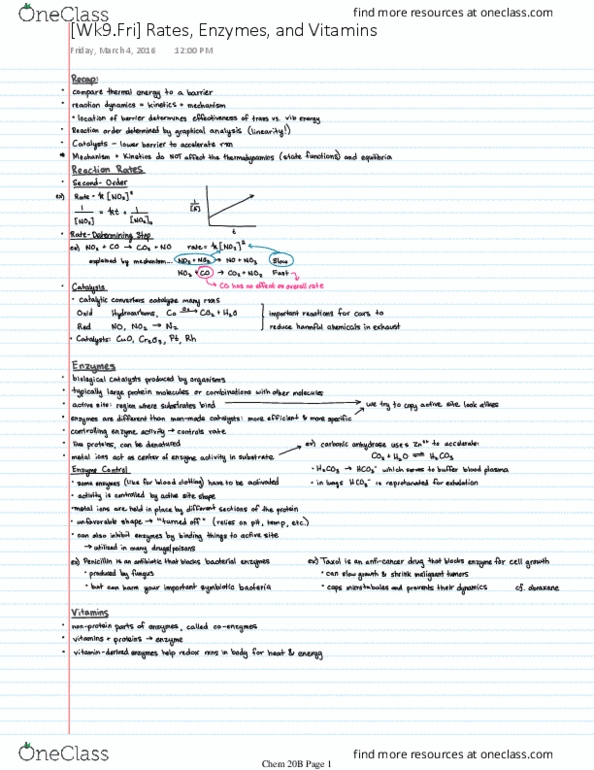 OneClass
find more resources at oneclass.com
[Wk9.Fri] Rates, Enzymes, and Vitamins
Friday, March 4, 2016 12:00 PM
Recap:
• compare thermal energy to a barrier
• reaction dynamics = kinetics + mechanism
• location of barrier determines effectiveness of trans vs. vib energy
• Reaction order determined by graphical analysis (linearity!)
• Catalysts – lower barrier to accelerate rxn
* Mechanism + Kinetics do NOT affect the thermodynamics (state functions) and equilibria
Reaction Rates
• Second-Order
ex) Rate = k [NO₂]²
1/[NO₂] = kt + 1/[NO₂]₀
1/[A]
t
• Rate-Determining Step
ex) NO₂ + CO → CO₂ + NO rate = k[NO₂]²
explained by mechanism... NO₂ + NO₂ → NO + NO₃ Slow
NO₃ + CO → CO₂ + NO₂ Fast
→ CO has no effect on overall rate
• Catalysis
• catalytic converters catalyze many rxns
Oxid Hydrocarbons, CO → CO₂ + H₂O
Red NO, NO₂ → N₂
important reactions for cars to
reduce harmful chemicals in exhaust
• Catalysts: CuO, Cr₂O₃, Pt, Rh
Enzymes
• biological catalysts produced by organisms
• typically large protein molecules or combinations with other molecules
• active site: region where substrates bind → we try to copy active site look alikes
• enzymes are different than man-made catalysts: more efficient & more specific
• controlling enzyme activity → controls rate
• like proteins, can be denatured
• metal ions act as center of enzyme activity in substrate
ex) carbonic anhydrase uses Zn²⁺ to accelerate:
CO₂ + H₂O ⇌ H₂CO₃
• H₂CO₃ → HCO₃⁻ which serves to buffer blood plasma
• in lungs HCO₃⁻ is reprotonated for exhalation
Enzyme Control
• some enzymes (like for blood clotting) have to be activated
• activity is controlled by active site shape
• metal ions are held in place by different sections of the protein
• unfavorable shape → "turned off" (relies on pH, temp, etc.)
• can also inhibit enzymes by binding things to active site
→ utilized in many drugs/poisons
ex) Penicillin is an antibiotic that blocks bacterial enzymes
• produced by fungus
• but can harm your important symbiotic bacteria
ex) Taxol is an anti-cancer drug that blocks enzyme for cell growth
• can slow growth & shrink malignant tumors
• caps microtubules and prevents their dynamics cf. abraxane
Vitamins
• non-protein parts of enzymes, called co-enzymes
• vitamins + proteins → enzyme
• vitamin-derived enzymes help redox rxns in body for heat & energy
OneClass
Chem 20B Page 1
find more resources at oneclass.com